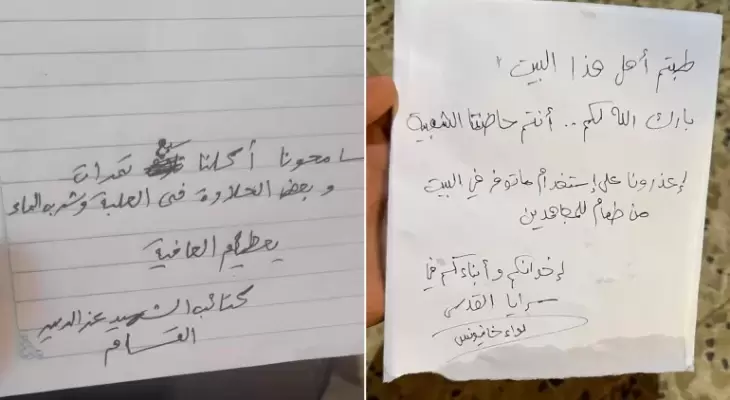 سامحونا أكلنا سبع تمرات
وبعض الحلاوة في العلبة وشربه الماء
يعطيكم العافية
كتائب الشهيد عز الدين
القسام
طبتم أهل هذا البيت
بارك الله لكم .. أنتم حاضنتنا الشعبية
إعذرونا على إستخدام ما توفر في البيت
من طعام للمجاهدين
إخوانكم وأبناءكم في
سرايا القدس
لواء خانيونس